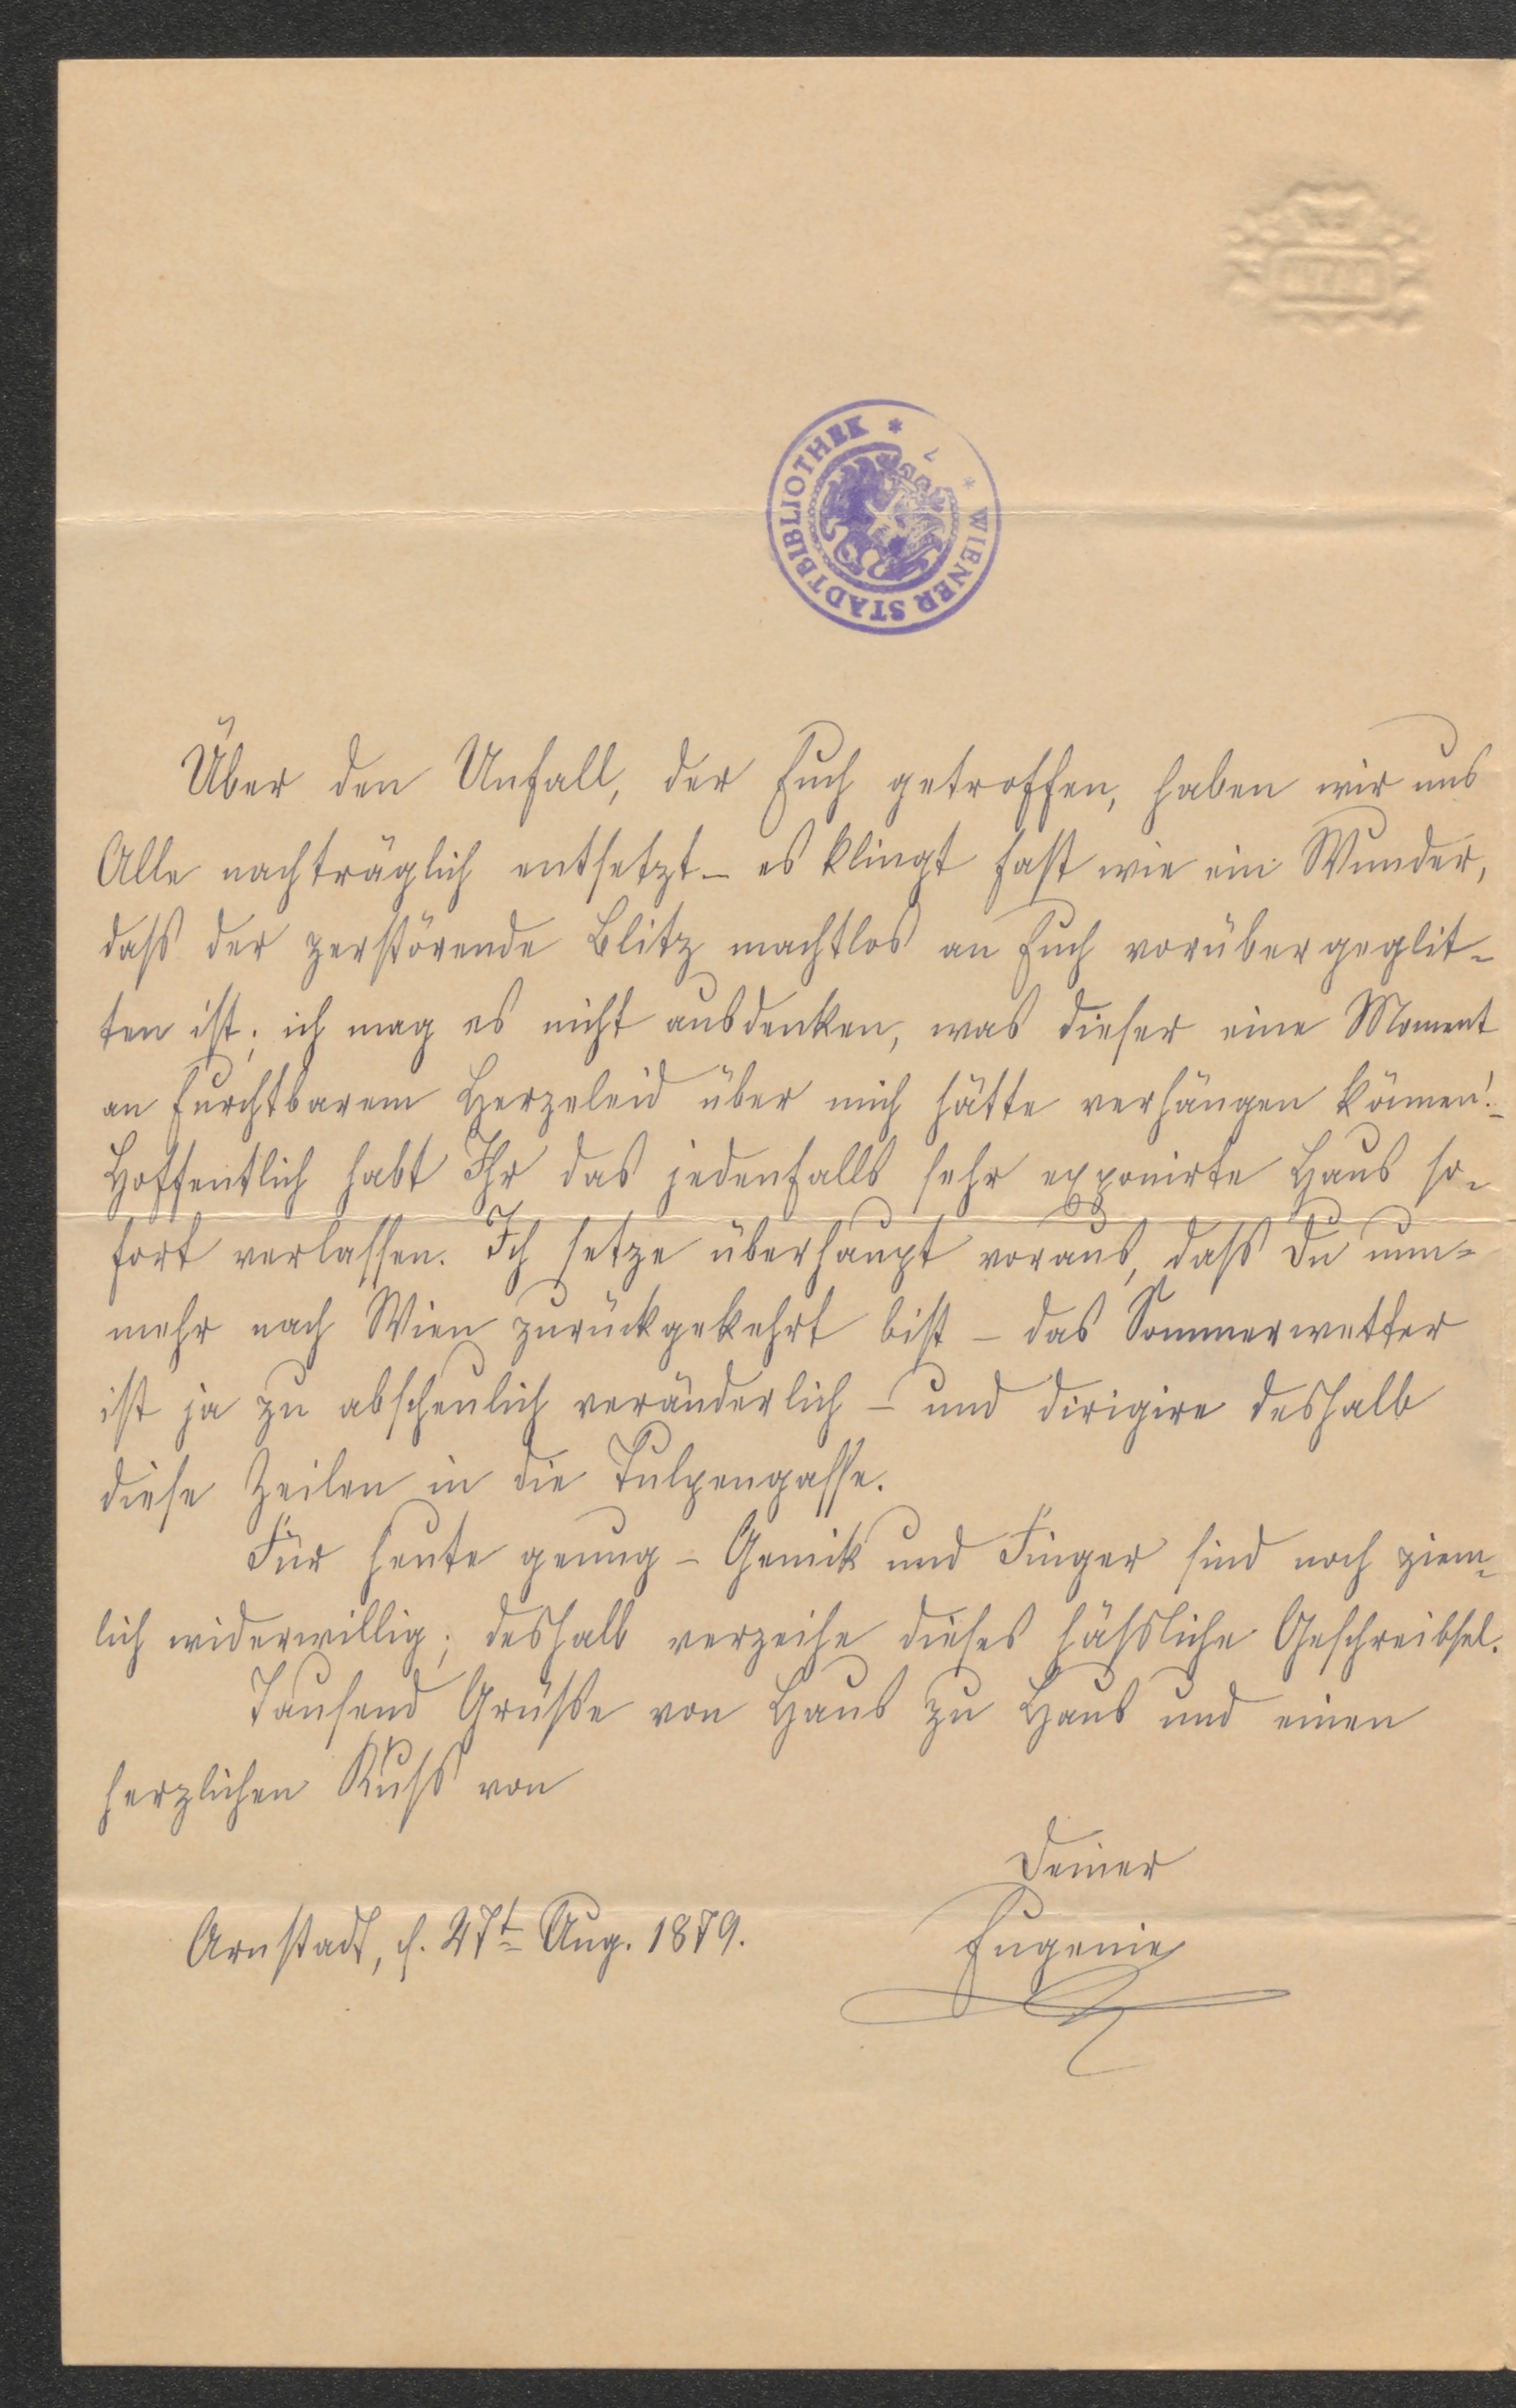 WIENER STADTBIBLIOTHEK
Über den Unfall, der Euch getroffen, haben wir uns
Alle nachträglich entsetzt – es klingt fast wie ein Wunder,
daß der zerstörende Blitz machtlos an Euch vorübergeglit-
ten ist; ich mag es nicht ausdenken, was dieser eine Moment
an furchtbarem Herzeleid über mich hätte verhängen können! –
Hoffentlich habt Ihr das jedenfalls sehr exponirte Haus so-
fort verlassen. Ich setze überhaupt voraus, daß Du nun-
mehr nach Wien zurückgekehrt bist – das Sommerwetter
ist ja zu abscheulich veränderlich – und dirigire deshalb
diese Zeilen in die Tulpengasse.
Für heute genug – Genick und Finger sind noch ziem-
lich widerwillig; deshalb verzeihe dieses häßliche Geschreibsel.
Tausend Grüße von Haus zu Haus und einen
herzlichen Kuß von
Deiner
Arnstadt, d. 27t Aug. 1879.
Eugenie